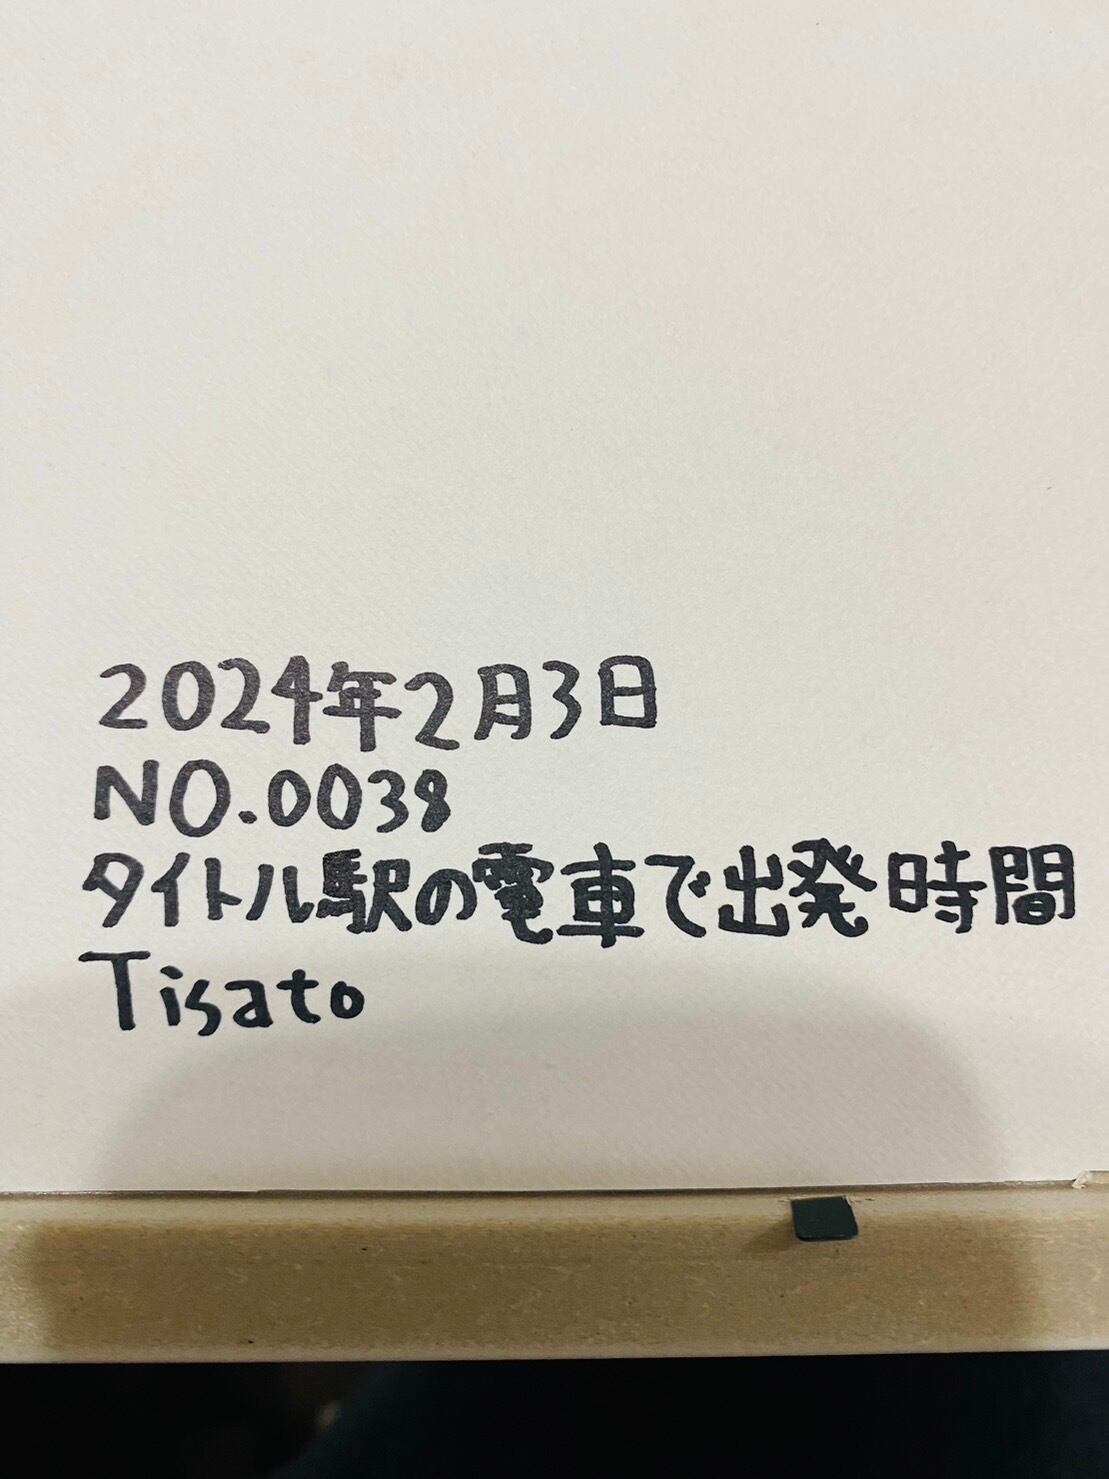 2024年2月3日
NO.0038
タイトル駅の電車で出発時間
Tisato